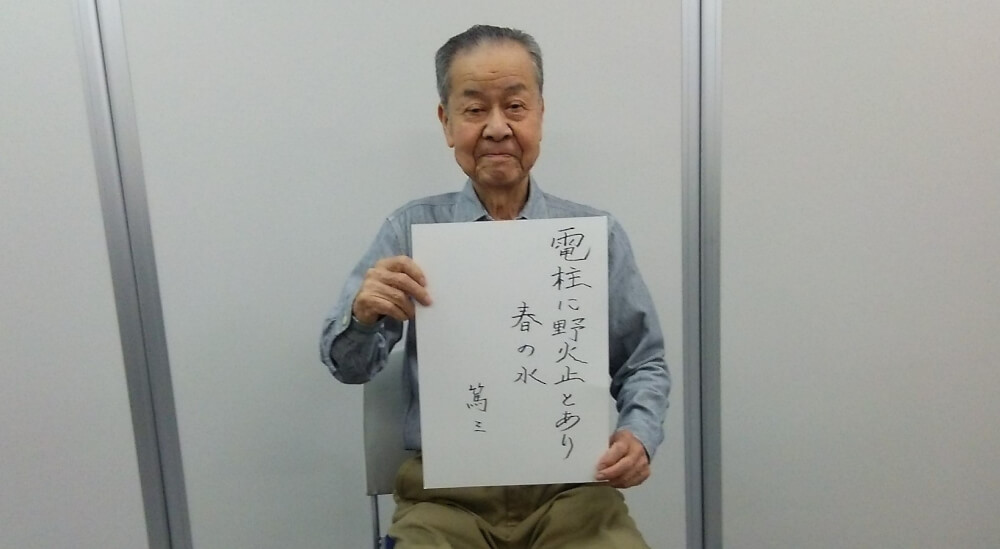 電柱に野火止とあり
春の水
篤三